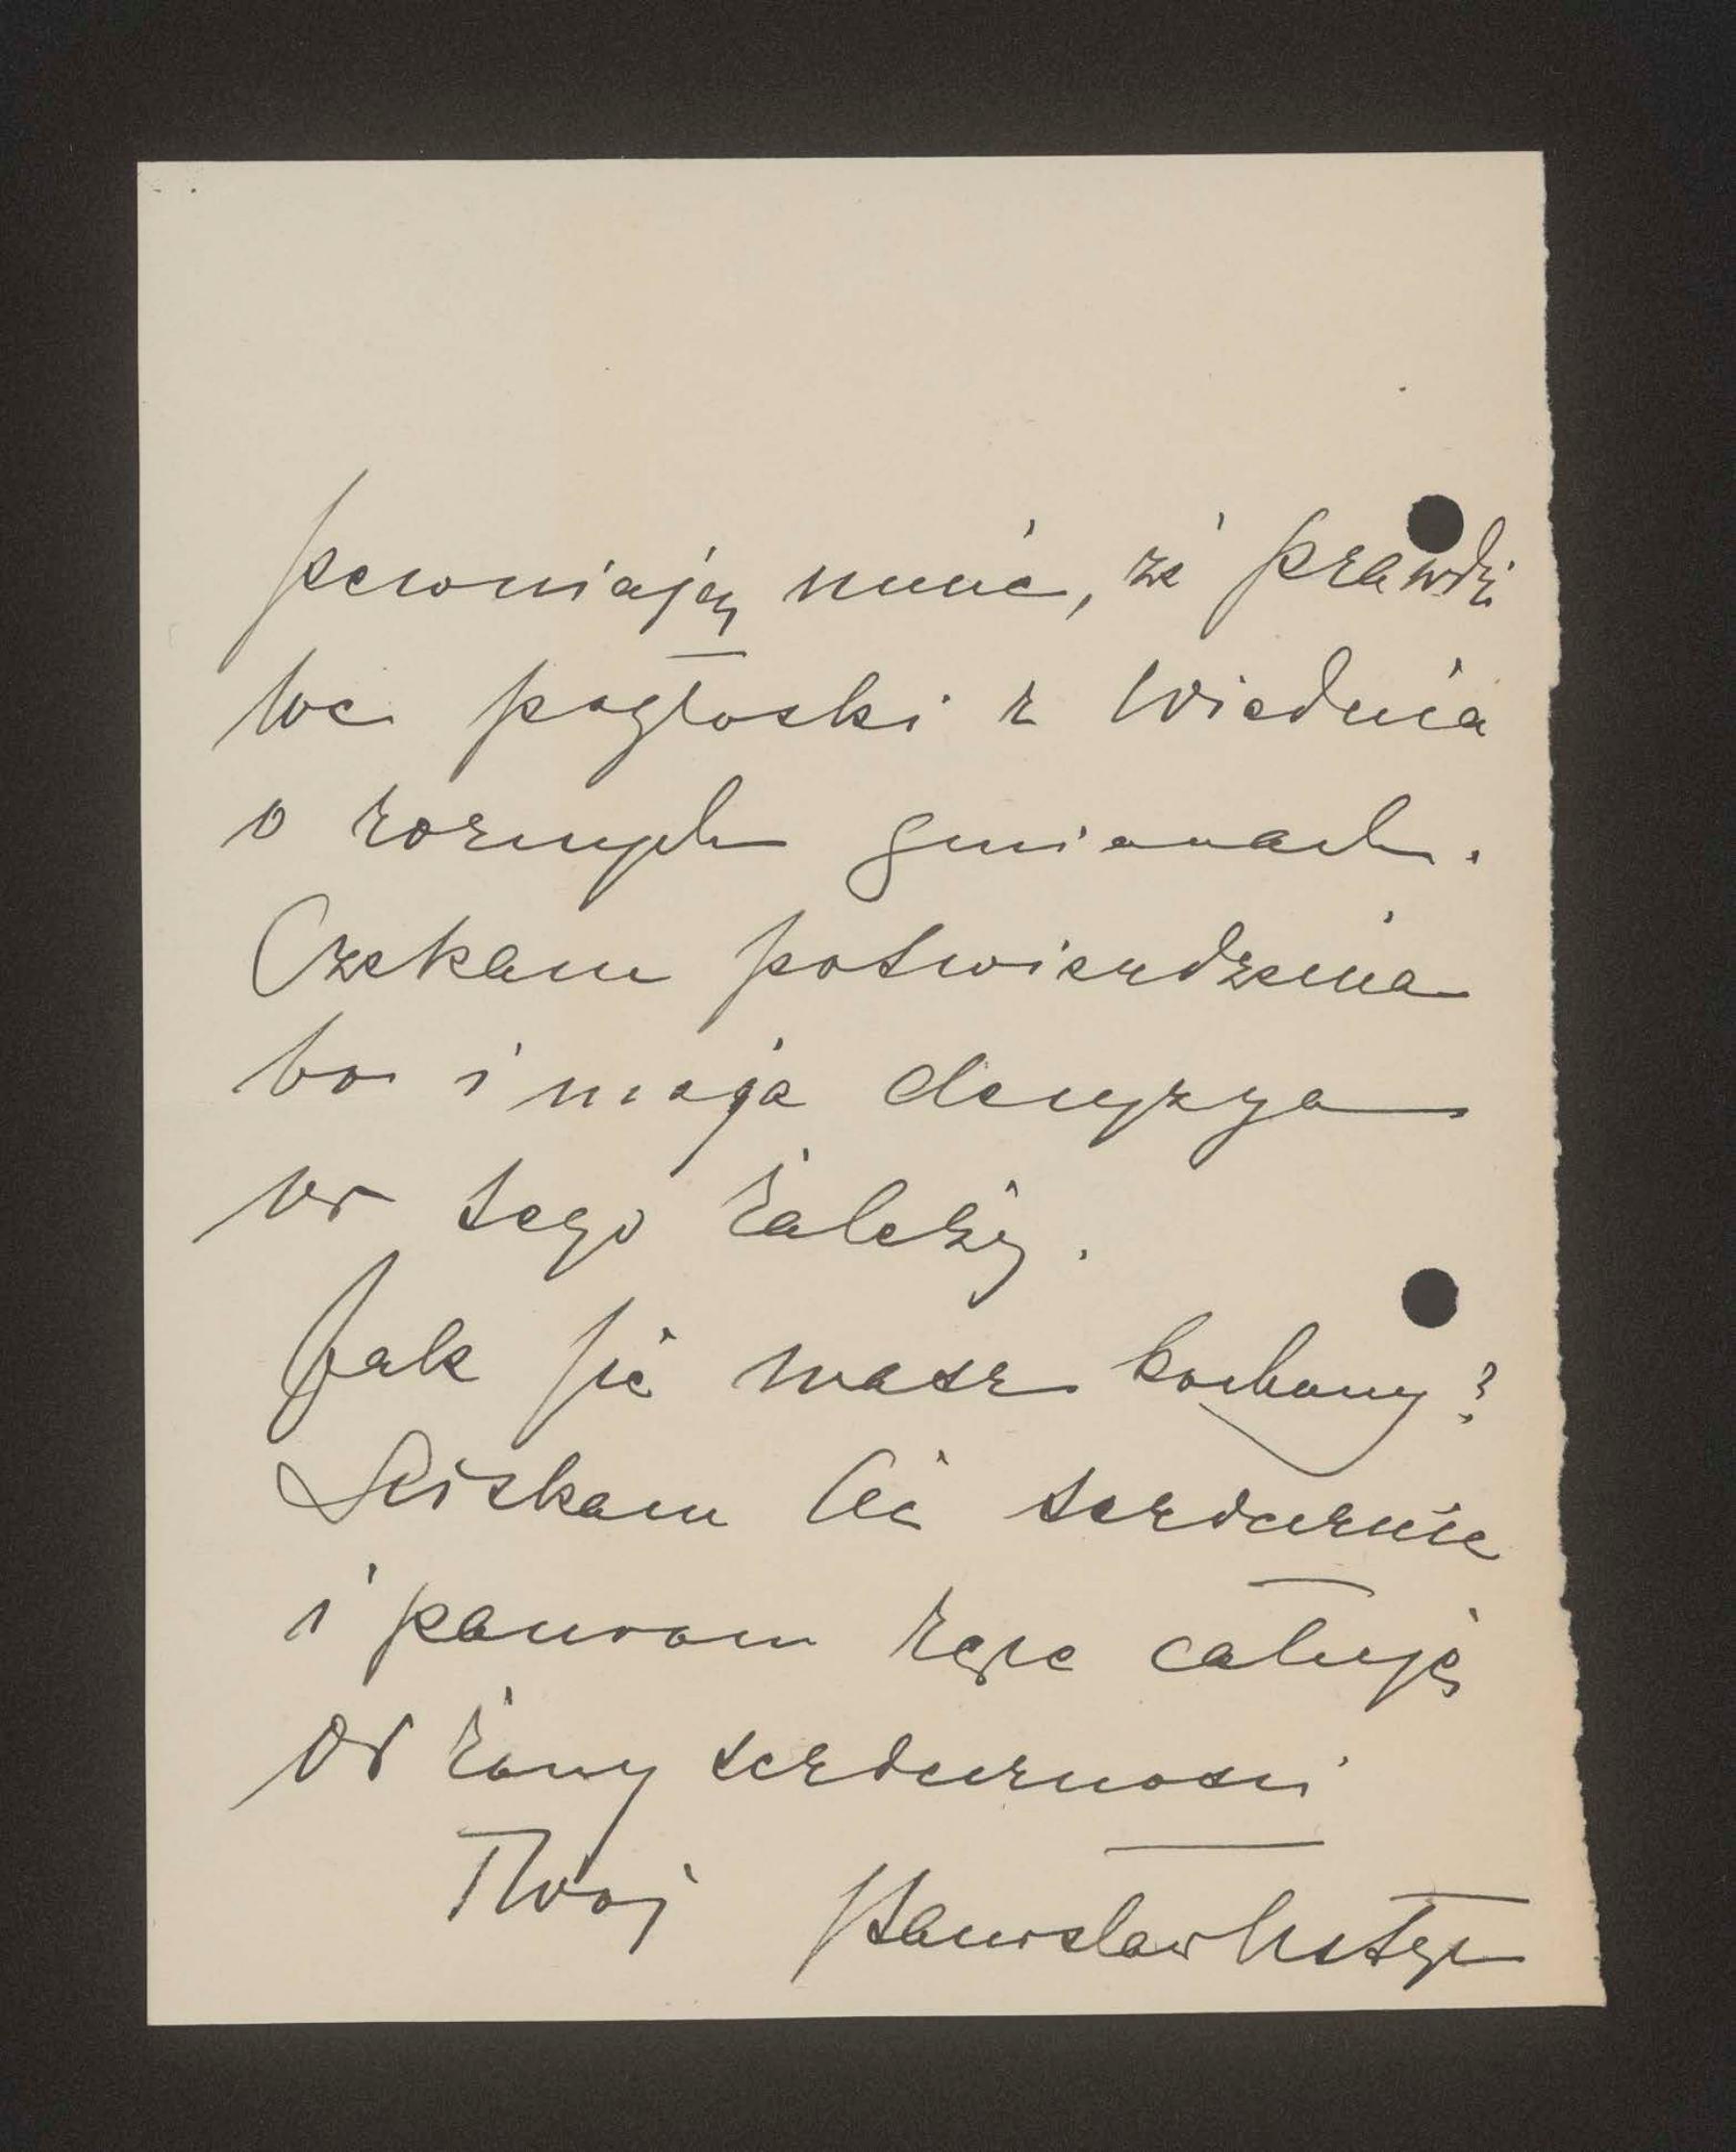 pewniają mnie, że prawdzi
we pogłoski z Wiednia
o roznych zmianach.
Czekam potwierdzenia
bo i moja decyzya
od tego zależy.
Jak się masz kochany?
Sciskam Cię serdecznie
i paniom ręce całuję
Od żony serdeczności
Twoj Stanisław